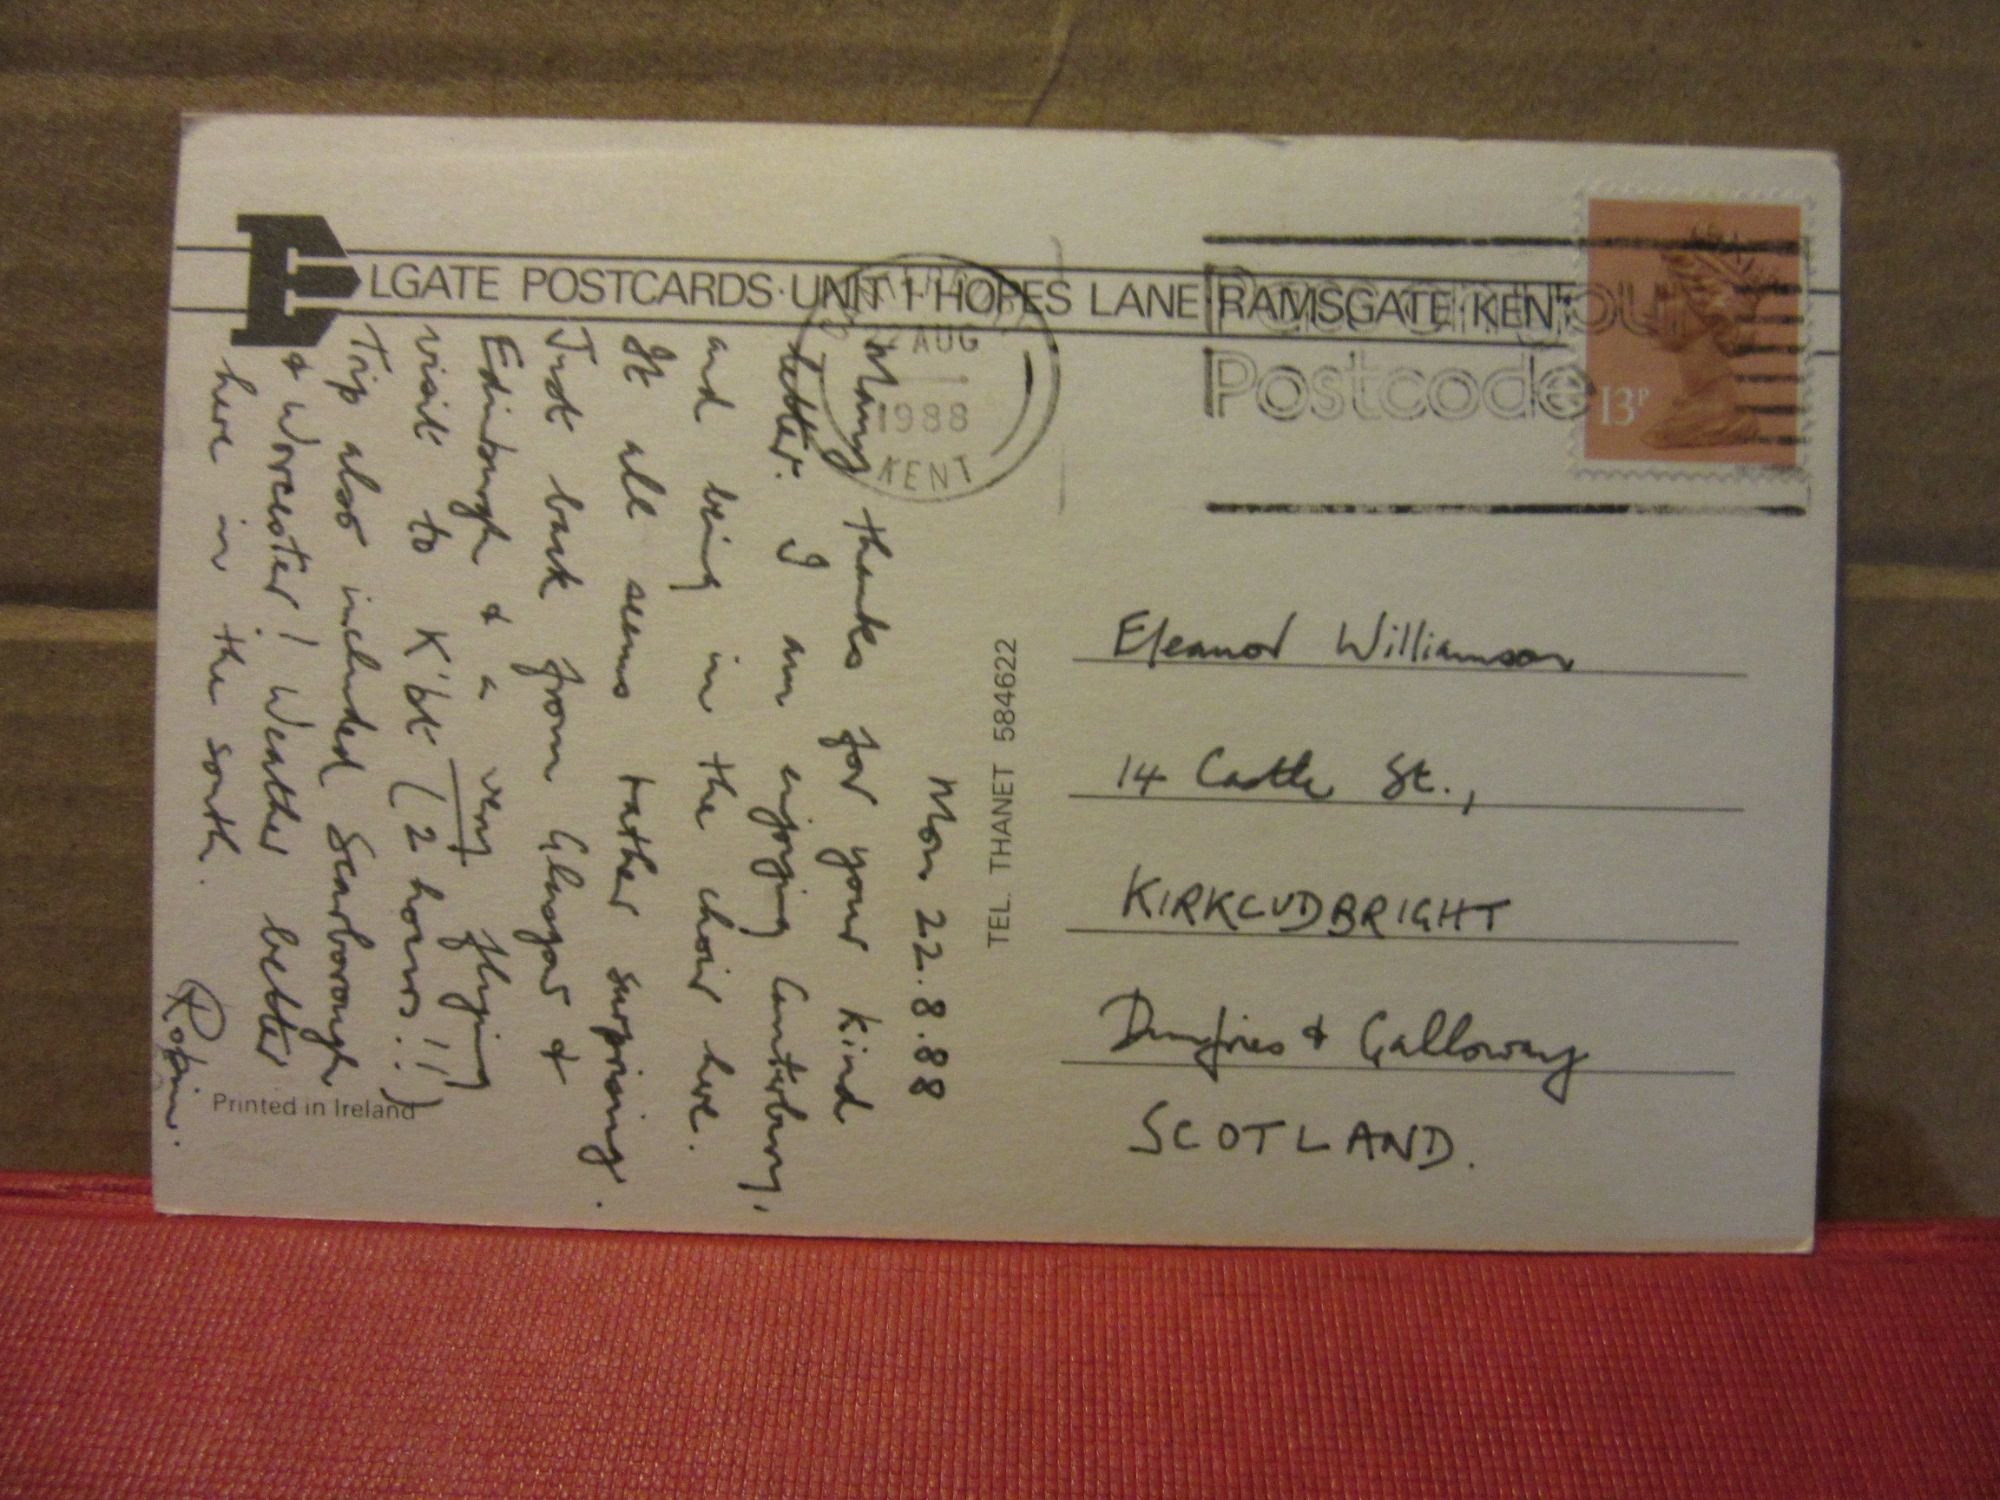 ELGATE POSTCARDS · UNIT 1 · HOPES LANE · RAMSGATE · KENT
AUG
1988
KENT
Postcode
13P
Mon 22.8.88
Many thanks for your kind
letter. I am enjoying Canterbury,
and being in the choir here.
It all seems rather surprising.
Just back from Glasgow &
Edinburgh & a very flying
visit to K'bt (2 hours!!)
Trip also included Scarborough
& Worcester! Weather better
here in the south.
Robin.
TEL. THANET 584622
Printed in Ireland
Eleanor Williamson
14 Castle St.,
KIRKCUDBRIGHT
Dumfries & Galloway
SCOTLAND.